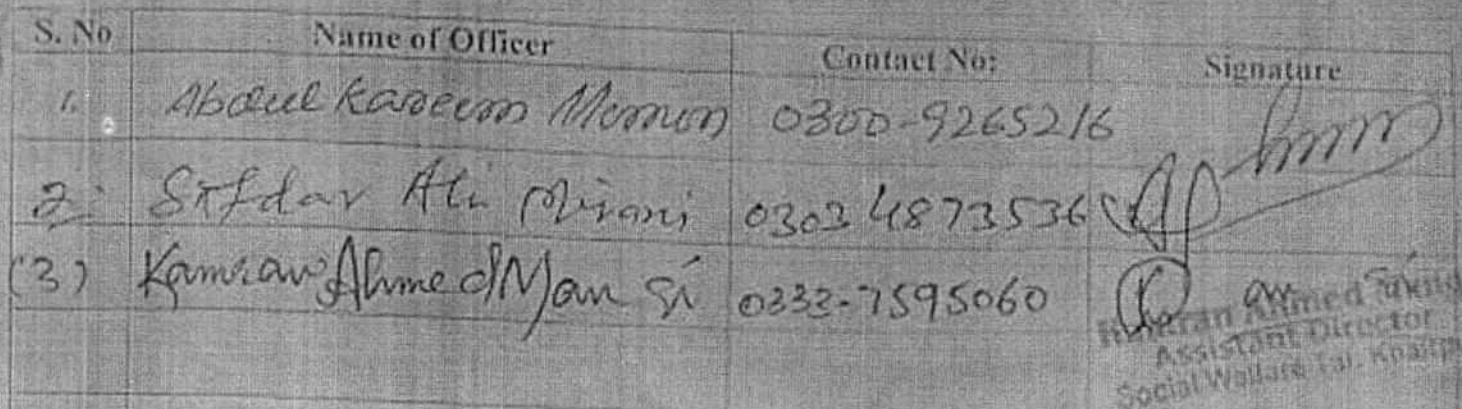 S. No Name of Officer Contact No: Signature
1. Abdul Kareem Memon 0300-9265216
2. Safdar Ali Mirani 0303 4873536
(3) Kamran Ahmed 0333-7595060
Ahmed
Assistant Director
Social Welfare Tal.